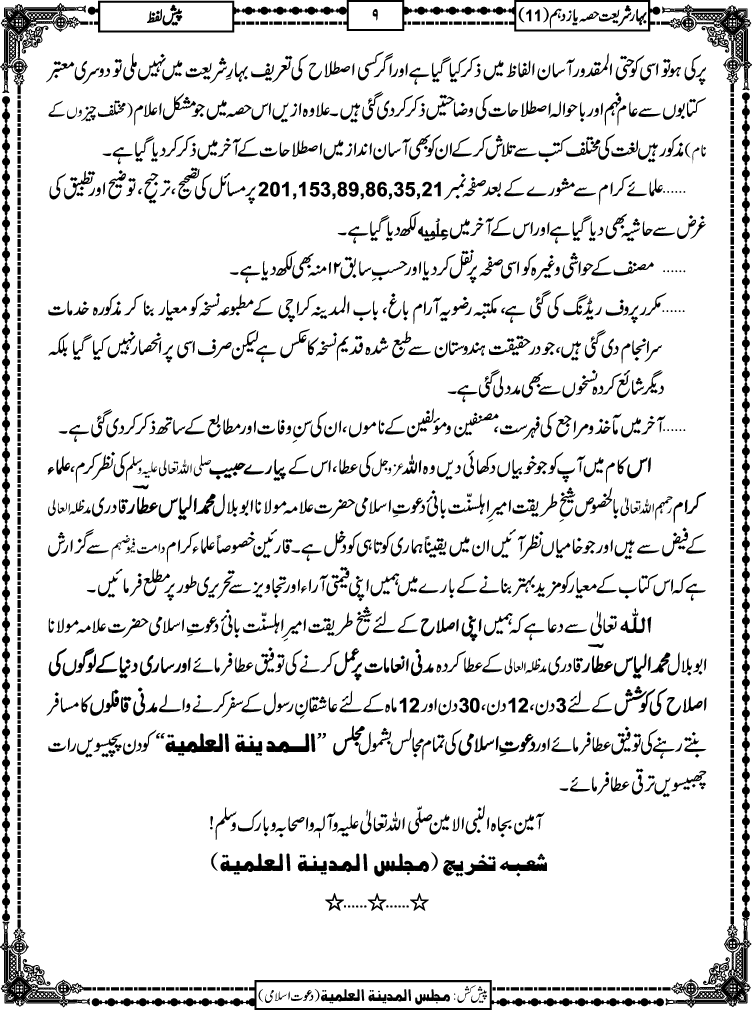 بہارِ شریعت حصہ یازدہم (11)
۹
پیش لفظ
پر کی ہو تو اسی کو حتی المقدور آسان الفاظ میں ذکر کیا گیا ہے اور اگر کسی اصطلاح کی تعریف بہارِ شریعت میں نہیں ملی تو دوسری معتبر
کتابوں سے عام فہم اور باحوالہ اصطلاحات کی وضاحتیں ذکر کر دی گئی ہیں۔ علاوہ ازیں اس حصہ میں جو مشکل اعلام (مختلف چیزوں کے
نام) مذکور ہیں لغت کی مختلف کتب سے تلاش کر کے ان کو بھی آسان انداز میں اصطلاحات کے آخر میں ذکر کر دیا گیا ہے۔
......علمائے کرام سے مشورے کے بعد صفحہ نمبر 201,153,89,86,35,21 پر مسائل کی تصحیح، ترجیح، توضیح اور تطبیق کی
غرض سے حاشیہ بھی دیا گیا ہے اور اس کے آخر میں عِلْمِیہ لکھ دیا گیا ہے۔
...... مصنف کے حواشی وغیرہ کو اسی صفحہ پر نقل کر دیا اور حسبِ سابق ۱۲ منہ بھی لکھ دیا ہے۔
......مکرر پروف ریڈنگ کی گئی ہے، مکتبہ رضویہ آرام باغ، باب المدینہ کراچی کے مطبوعہ نسخہ کو معیار بنا کر مذکورہ خدمات
سرانجام دی گئی ہیں، جو درحقیقت ہندوستان سے طبع شدہ قدیم نسخہ کا عکس ہے لیکن صرف اسی پر انحصار نہیں کیا گیا بلکہ
دیگر شائع کردہ نسخوں سے بھی مدد لی گئی ہے۔
......آخر میں مآخذ و مراجع کی فہرست، مصنفین و مؤلفین کے ناموں، ان کی سنِ وفات اور مطابع کے ساتھ ذکر کر دی گئی ہے۔
اس کام میں آپ کو جو خوبیاں دکھائی دیں وہ اللہ عزوجل کی عطا، اس کے پیارے حبیب صلی اللہ تعالی علیہ وسلم کی نظرِ کرم، علماء
کرام رحمہم اللہ تعالیٰ بالخصوص شیخِ طریقت امیرِ اہلسنّت بانیِٔ دعوتِ اسلامی حضرت علامہ مولانا ابو بلال محمد الیاس عطار قادری مدظلہ العالی
کے فیض سے ہیں اور جو خامیاں نظر آئیں ان میں یقیناً ہماری کوتاہی کو دخل ہے۔ قارئین خصوصاً علماء کرام دامت فیوضہم سے گزارش
ہے کہ اس کتاب کے معیار کو مزید بہتر بنانے کے بارے میں ہمیں اپنی قیمتی آراء اور تجاویز سے تحریری طور پر مطلع فرمائیں۔
اللہ تعالیٰ سے دعا ہے کہ ہمیں اپنی اصلاح کے لئے شیخ طریقت امیر اہلسنّت بانیِٔ دعوتِ اسلامی حضرت علامہ مولانا
ابو بلال محمد الیاس عطار قادری مدظلہ العالی کے عطا کردہ مدنی انعامات پر عمل کرنے کی توفیق عطا فرمائے اور ساری دنیا کے لوگوں کی
اصلاح کی کوشش کے لئے 3 دن، 12 دن، 30 دن اور 12 ماہ کے لئے عاشقانِ رسول کے سفر کرنے والے مدنی قافلوں کا مسافر
بنتے رہنے کی توفیق عطا فرمائے اور دعوتِ اسلامی کی تمام مجالس بشمول مجلس ”المدینۃ العلمیۃ“ کو دن پچیسویں رات
چھبیسویں ترقی عطا فرمائے۔
آمین بجاہ النبی الامین صلّی اللہ تعالیٰ علیہ وآلہٖ واصحابہ وبارک وسلم!
شعبہ تخریج (مجلس المدینۃ العلمیۃ)
☆......☆......☆
پیش کش: مجلس المدینۃ العلمیۃ (دعوتِ اسلامی)